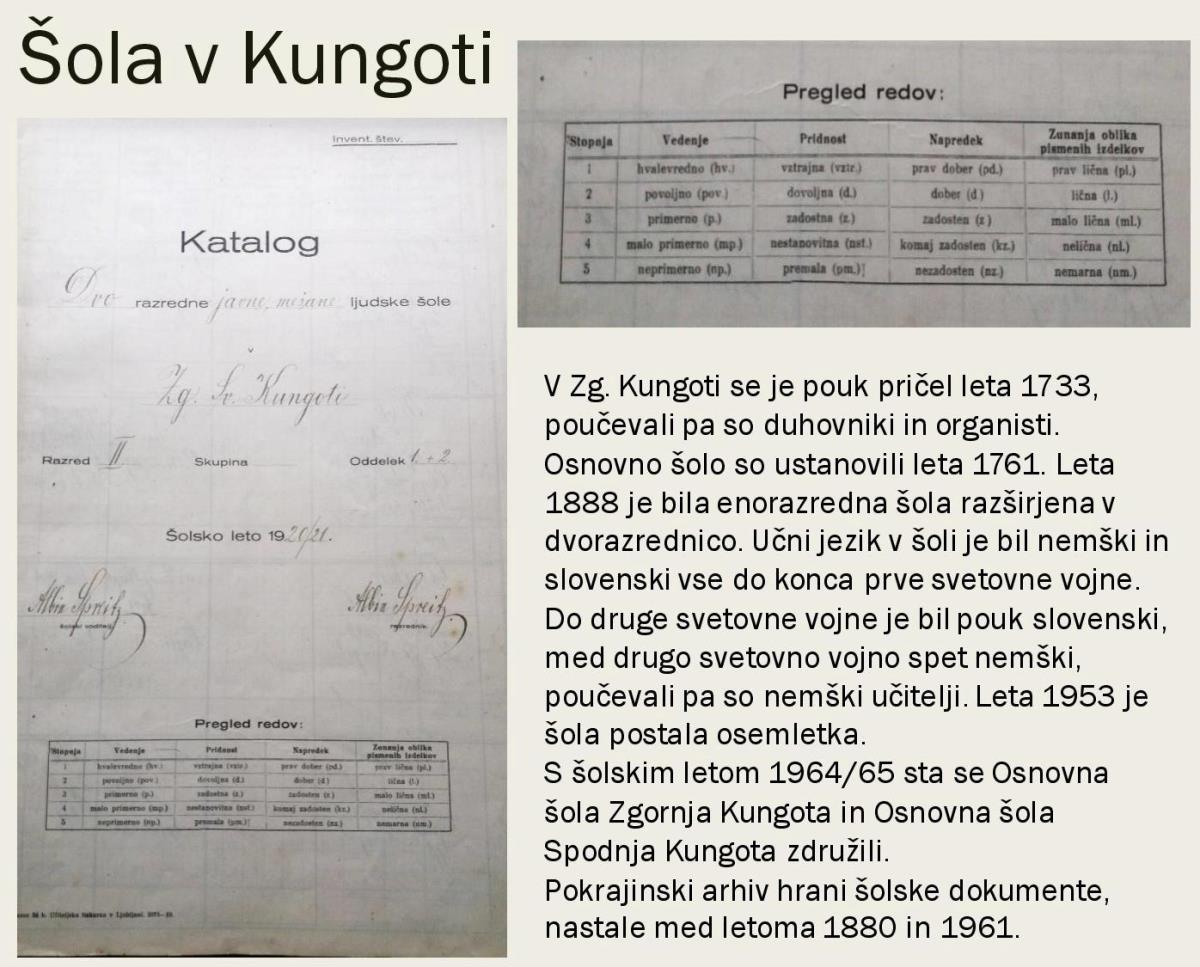 Šola v Kungoti
Invent. štev.
Katalog
Dvo razredne javne, mešane ljudske šole
v
Zg. Sv. Kungoti
Razred II Skupina Oddelek 1. + 2.
Šolsko leto 1920/21.
Albin Spreitz Albin Spreitz
šolski voditelj. razrednik.
Pregled redov:
Stopnja Vedenje Pridnost Napredek Zunanja oblika pismenih izdelkov
1 hvalevredno (hv.) vztrajna (vztr.) prav dober (pd.) prav lična (pl.)
2 povoljno (pov.) dovoljna (d.) dober (d.) lična (l.)
3 primerno (p.) zadostna (z.) zadosten (z.) malo lična (ml.)
4 malo primerno (mp.) nestanovitna (nst.) komaj zadosten (kz.) nelična (nl.)
5 neprimerno (np.) premala (pm.) nezadosten (nz.) nemarna (nm.)
Učiteljska tiskarna v Ljubljani.
Pregled redov:
Stopnja Vedenje Pridnost Napredek Zunanja oblika
pismenih izdelkov
1 hvalevredno (hv.) vztrajna (vztr.) prav dober (pd.) prav lična (pl.)
2 povoljno (pov.) dovoljna (d.) dober (d) lična (l.)
3 primerno (p.) zadostna (z.) zadosten (z) malo lična (ml.)
4 malo primerno (mp.) nestanovitna (nst.) komaj zadosten (kz.) nelična (nl.)
5 neprimerno (np.) premala (pm.) nezadosten (nz.) nemarna (nm.)
V Zg. Kungoti se je pouk pričel leta 1733,
poučevali pa so duhovniki in organisti.
Osnovno šolo so ustanovili leta 1761. Leta
1888 je bila enorazredna šola razširjena v
dvorazrednico. Učni jezik v šoli je bil nemški in
slovenski vse do konca prve svetovne vojne.
Do druge svetovne vojne je bil pouk slovenski,
med drugo svetovno vojno spet nemški,
poučevali pa so nemški učitelji. Leta 1953 je
šola postala osemletka.
S šolskim letom 1964/65 sta se Osnovna
šola Zgornja Kungota in Osnovna šola
Spodnja Kungota združili.
Pokrajinski arhiv hrani šolske dokumente,
nastale med letoma 1880 in 1961.